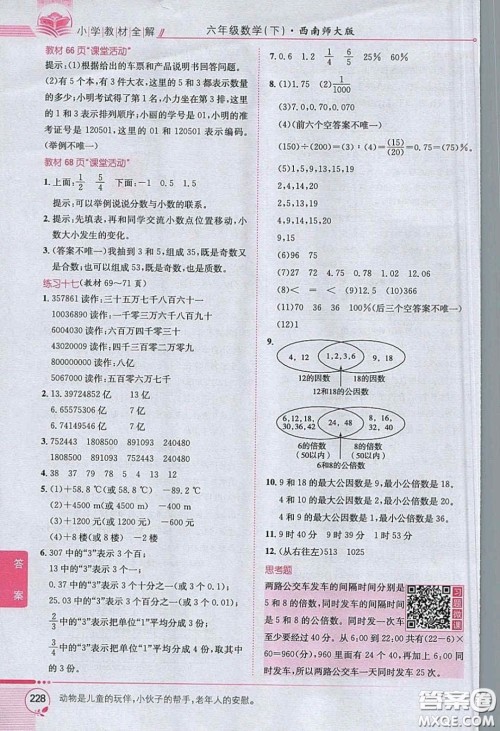 小学教材全解
六年级数学(下)·西南师大版
教材66页“课堂活动”
提示:(1)根据给出的车票和产品说明书回答问题。
(2)在生活中,有5本书,有3件大衣,这里的5和3都表示数量
的多少;小明考试得了第1名,小力坐在第2排,第3
排,这里的数都表示排列顺序;小丽的学号是01,小明的准
考证号是120501,这里的01和120501都表示编码。
(举例不唯一)
教材68页“课堂活动”
1. 上面:1/2 5/4 下面:-1 0.5 1.5
提示:可以举例说说分数与小数的联系。
2. 提示:先填表,再和同学交流小数点位置移动,小
数大小发生的变化。
3. (答案不唯一)我抽到3和5,组成35,既是奇数又
是合数;也可以组成53,既是奇数又是质数。
练习十七(教材69~71页)
1. 357861读作:三十五万七千八百六十一
10036890读作:一千零三万六千八百九十
90065910读作:九千零六万五千九百一十
6004030读作:六百万四千零三十
32003590读作:三千二百万三千五百九十
800000000读作:八亿
5067000读作:五百零六万七千
2. 13.39724852亿 13亿
6.65575306亿 7亿
3.74849531亿 4亿
3. 752443 1808500 891093 240480
1808500 891093 752443 240480
4. 38 37 79 54 78 13 4
5. (1)+58.8℃(或58.8℃) -89.2℃
(2)+8844米(或8844米) -155米
(3)+1200元(或1200元) -600元
(4)+2楼(或2楼) -2楼
6. 307中的“3”表示3个百;
13中的“3”表示3个一;
0.37中的“3”表示3个十分之一;
50.03中的“3”表示3个百分之一;
2/3中的“3”表示把单位“1”平均分成3份;
3/4中的“3”表示把单位“1”平均分成4份,取了
其中的3份。
7. 0.6 1.2 3/4 25%
8. (1)2 1/2 1/1000
(3)7.0,0.70,0.070
(4)(前六个空答案不唯一)
(150)÷(200)=(3):(4)=(15)/(20)=0.75=(75)%。
(5)1,2,4,7,14,28
1,2,4,5,10,20
2,4,14,20
(6)13 27 96
(7)2,7,19 4,9,12,15
2,4,12 7,9,15,19
(8)7 12
(9)18 24 30 36
(10)2 25 60 22 36
(11)10 3 36 10% (后三个空答案不唯一)
(12)D
9.
4,12 1,2,3,6 9,18
12的因数 18的因数
12和18的公因数
6,12,18,30,36,42 24,48 8,16,32,40
6的倍数(50以内) 8的倍数(50以内)
6和8的公倍数
10. 9和18的最大公因数是9,最小公倍数是18。
4和9的最大公因数是1,最小公倍数是36。
11. 9时40分 9时39分 1时53分
12. (从右往左)513 1025
思考题
两路公交车发车的间隔时间分别是
5和8的倍数,同时发车的间隔时间
是5和8的公倍数,同时发一次车
至少要经过40分。从6:00到
22:00共有(22-6)×
60=960(分),960里共有960÷40=24(个)同
时发车,所以两路公交车一天同时发车25次。
习题微课
答案
228
动物是儿童的玩伴,小伙子的帮手,老年人的安慰。
答案圈
MXQE.COM